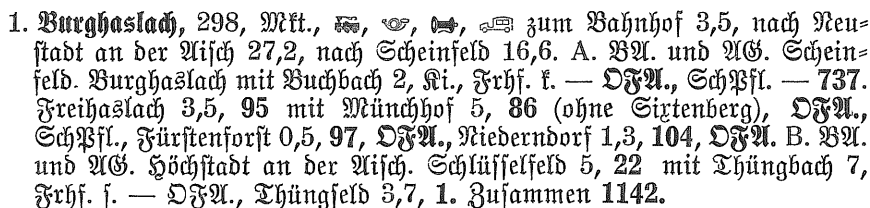 1. Burghaslach, 298, Mkt., 🚂, 📯, , 🚌 zum Bahnhof 3,5, nach Neu=
stadt an der Aisch 27,2, nach Scheinfeld 16,6. A. BA. und AG. Schein=
feld. Burghaslach mit Buchbach 2, Ki., Frhf. k. — OFA., SchPfl. — 737.
Freihaslach 3,5, 95 mit Münchhof 5, 86 (ohne Sixtenberg), OFA.,
SchPfl., Fürstenforst 0,5, 97, OFA., Niederndorf 1,3, 104, OFA. B. BA.
und AG. Höchstadt an der Aisch. Schlüsselfeld 5, 22 mit Thüngbach 7,
Frhf. s. — OFA., Thüngfeld 3,7, 1. Zusammen 1142.